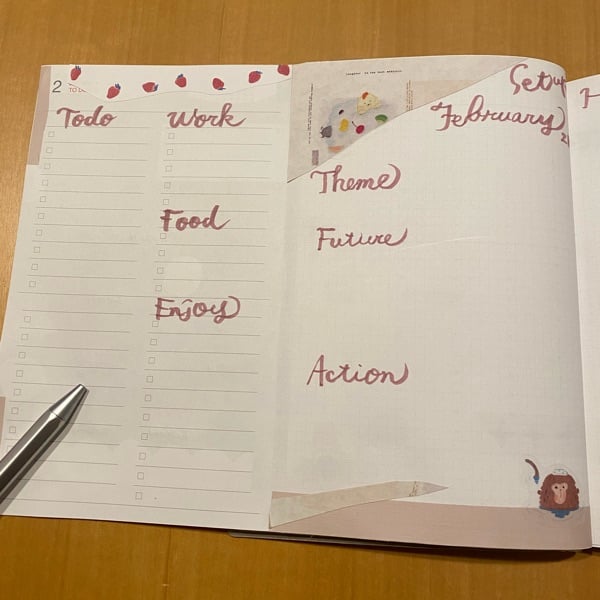 2
TO DO
Todo
Work
Food
Enjoy
Setup
February
Theme
Future
Action